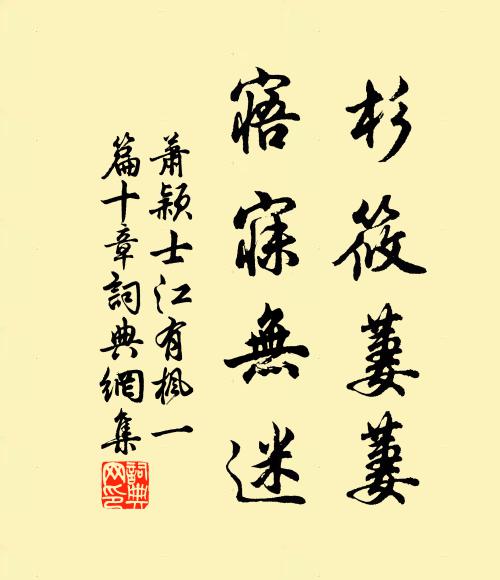 杉筱萋萋
寤寐無迷
蕭穎士江有楓一
篇十章詞典網集
詞典网印